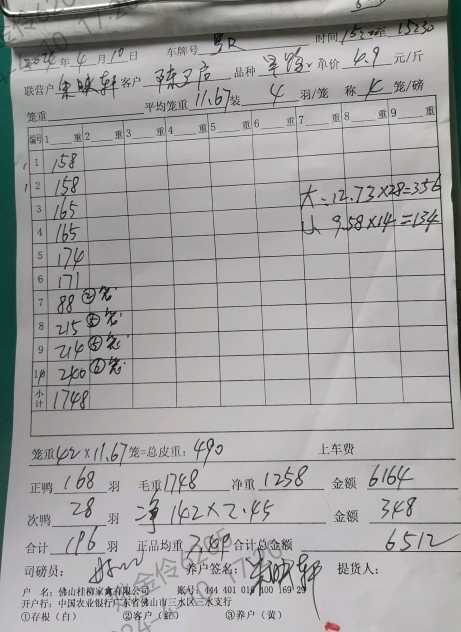 2024年4月10日 车牌号 时间1520至1530
联营户 客户 品种 单价4.9元/斤
笼重 平均笼重11.67装4羽/笼 称K笼/磅
编号 1 重 2 重 3 重 4 重 5 重 6 重 7 重 8 重 9 重
1 158
2 158 大:12.73×28=356
3 165 小 9.58×14=134
4 165
5 174
6 171
7 88 ②笼
8 215 ⑤笼
9 214 ⑤笼
10 240 ⑥笼
小计 1748
笼重42×11.67笼=总皮重:490 上车费
正鸭168羽 毛重1748 净重1258 金额6164
次鸭28羽 净142×2.45 金额348
合计196羽 正品均重 合计总金额6512
司磅员: 养户签名: 提货人:
户 名:佛山桂柳家禽有限公司
开户行:中国农业银行广东省佛山市三水区三水支行
①存根(白) ②客户(红) ③养户(黄)